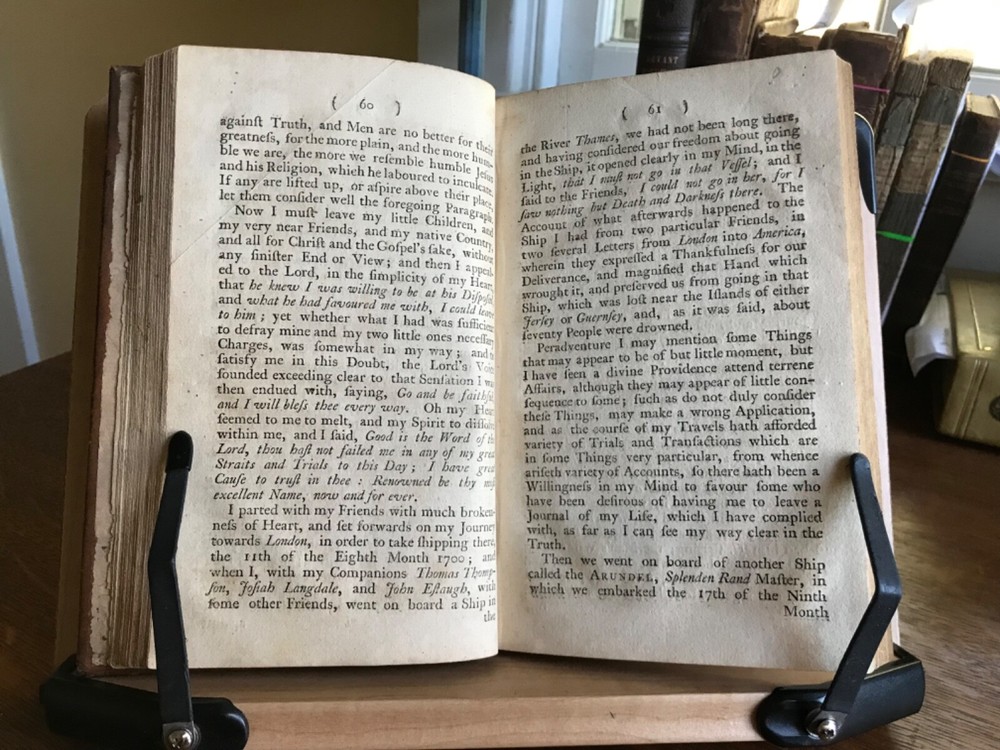 ( 60 )
againſt Truth, and Men are no better for their
greatneſs, for the more plain, and the more hum-
ble we are, the more we reſemble humble Jeſus
and his Religion, which he laboured to inculcate.
If any are lifted up, or aſpire above their place,
let them conſider well the foregoing Paragraph.
Now I muſt leave my little Children, and
my very near Friends, and my native Country,
and all for Chriſt and the Goſpel's ſake, without
any ſiniſter End or View; and then I appeal-
ed to the Lord, in the ſimplicity of my Heart,
that he knew I was willing to be at his Diſpoſal,
and what he had favoured me with, I could leave
to him; yet whether what I had was ſufficient
to defray mine and my two little ones neceſſary
Charges, was ſomewhat in my way; and to
ſatisfy me in this Doubt, the Lord's Voice
ſounded exceeding clear to that Senſation I was
then endued with, ſaying, Go and be faithful,
and I will bleſs thee every way. Oh my Heart
ſeemed to me to melt, and my Spirit to diſſolve
within me, and I ſaid, Good is the Word of the
Lord, thou haſt not failed me in any of my great
Straits and Trials to this Day; I have great
Cauſe to truſt in thee: Renowned be thy moſt
excellent Name, now and for ever.
I parted with my Friends with much broken-
neſs of Heart, and ſet forwards on my Journey
towards London, in order to take ſhipping there,
the 11th of the Eighth Month 1700; and
when I, with my Companions Thomas Thomp-
ſon, Joſiah Langdale, and John Eſtaugh, with
ſome other Friends, went on board a Ship in
the
( 61 )
the River Thames, we had not been long there,
and having conſidered our freedom about going
in the Ship, it opened clearly in my Mind, in the
Light, that I muſt not go in that Veſſel; and I
ſaid to the Friends, I could not go in her, for I
ſaw nothing but Death and Darkneſs there. The
Account of what afterwards happened to the
Ship I had from two particular Friends, in
two ſeveral Letters from London into America,
wherein they expreſſed a Thankfulneſs for our
Deliverance, and magnified that Hand which
wrought it, and preſerved us from going in that
Ship, which was loſt near the Iſlands of either
Jerſey or Guernſey, and, as it was ſaid, about
ſeventy People were drowned.
Peradventure I may mention ſome Things
that may appear to be of but little moment, but
I have ſeen a divine Providence attend terrene
Affairs, although they may appear of little con-
ſequence to ſome; ſuch as do not duly conſider
theſe Things, may make a wrong Application,
and as the courſe of my Travels hath afforded
variety of Trials and Tranſactions which are
in ſome Things very particular, from whence
ariſeth variety of Accounts, ſo there hath been a
Willingneſs in my Mind to favour ſome who
have been deſirous of having me to leave a
Journal of my Life, which I have complied
with, as far as I can ſee my way clear in the
Truth.
Then we went on board of another Ship
called the ARUNDEL, Splenden Rand Maſter, in
which we embarked the 17th of the Ninth
Month